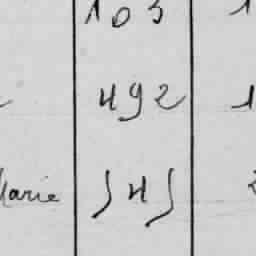 103 1
492 1
Marie 545